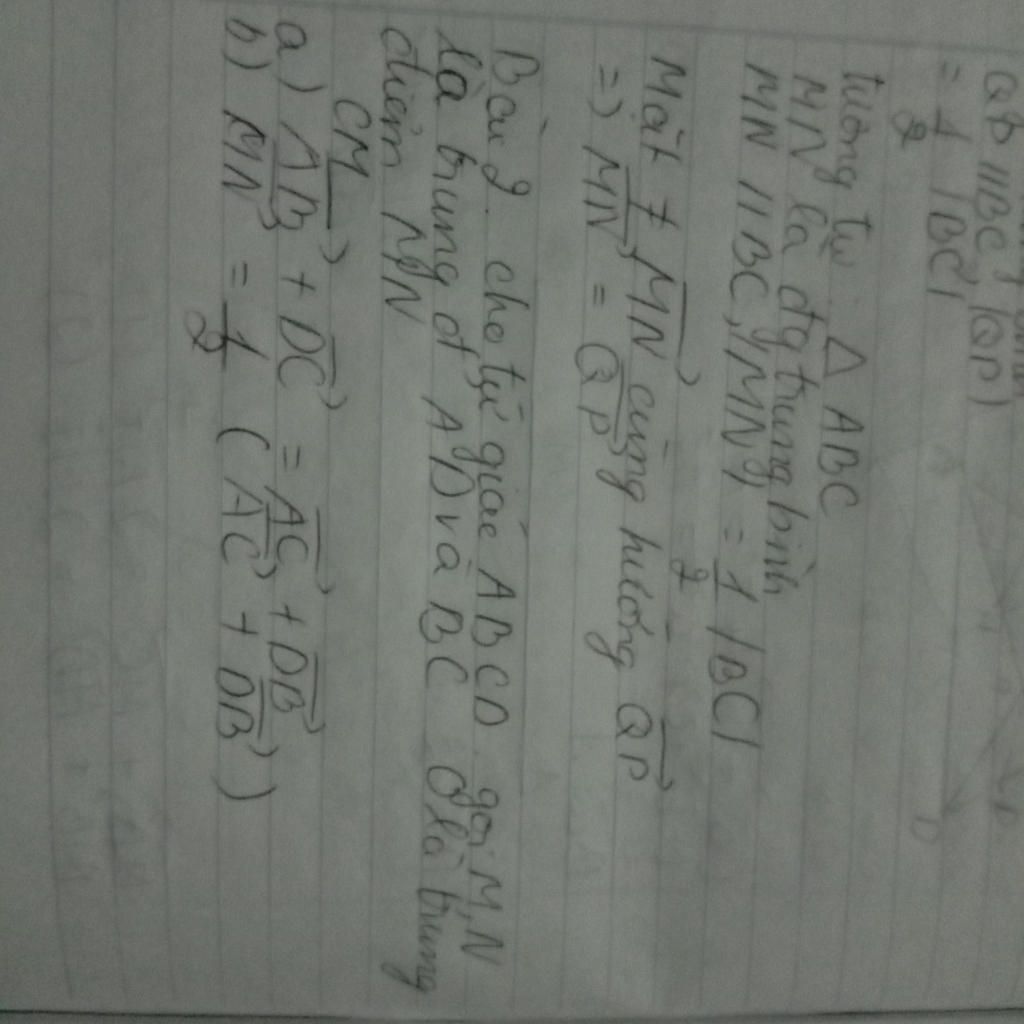 QP // BC, |QP|
= 1/2 |BC|
tương tự Δ ABC
MN là đg trung bình
MN // BC, |MN| = 1/2 |BC|
Mặt ≠ \overrightarrow{MN} cùng hướng \overrightarrow{QP}
=> \overrightarrow{MN} = \overrightarrow{QP}
Bài 2. cho tứ giác ABCD. gọi M, N
là trung đ' AD và BC O là trung
điểm MN
CM
a) \overrightarrow{AB} + \overrightarrow{DC} = \overrightarrow{AC} + \overrightarrow{DB}
b) \overrightarrow{MN} = 1/2 (\overrightarrow{AC} + \overrightarrow{DB})